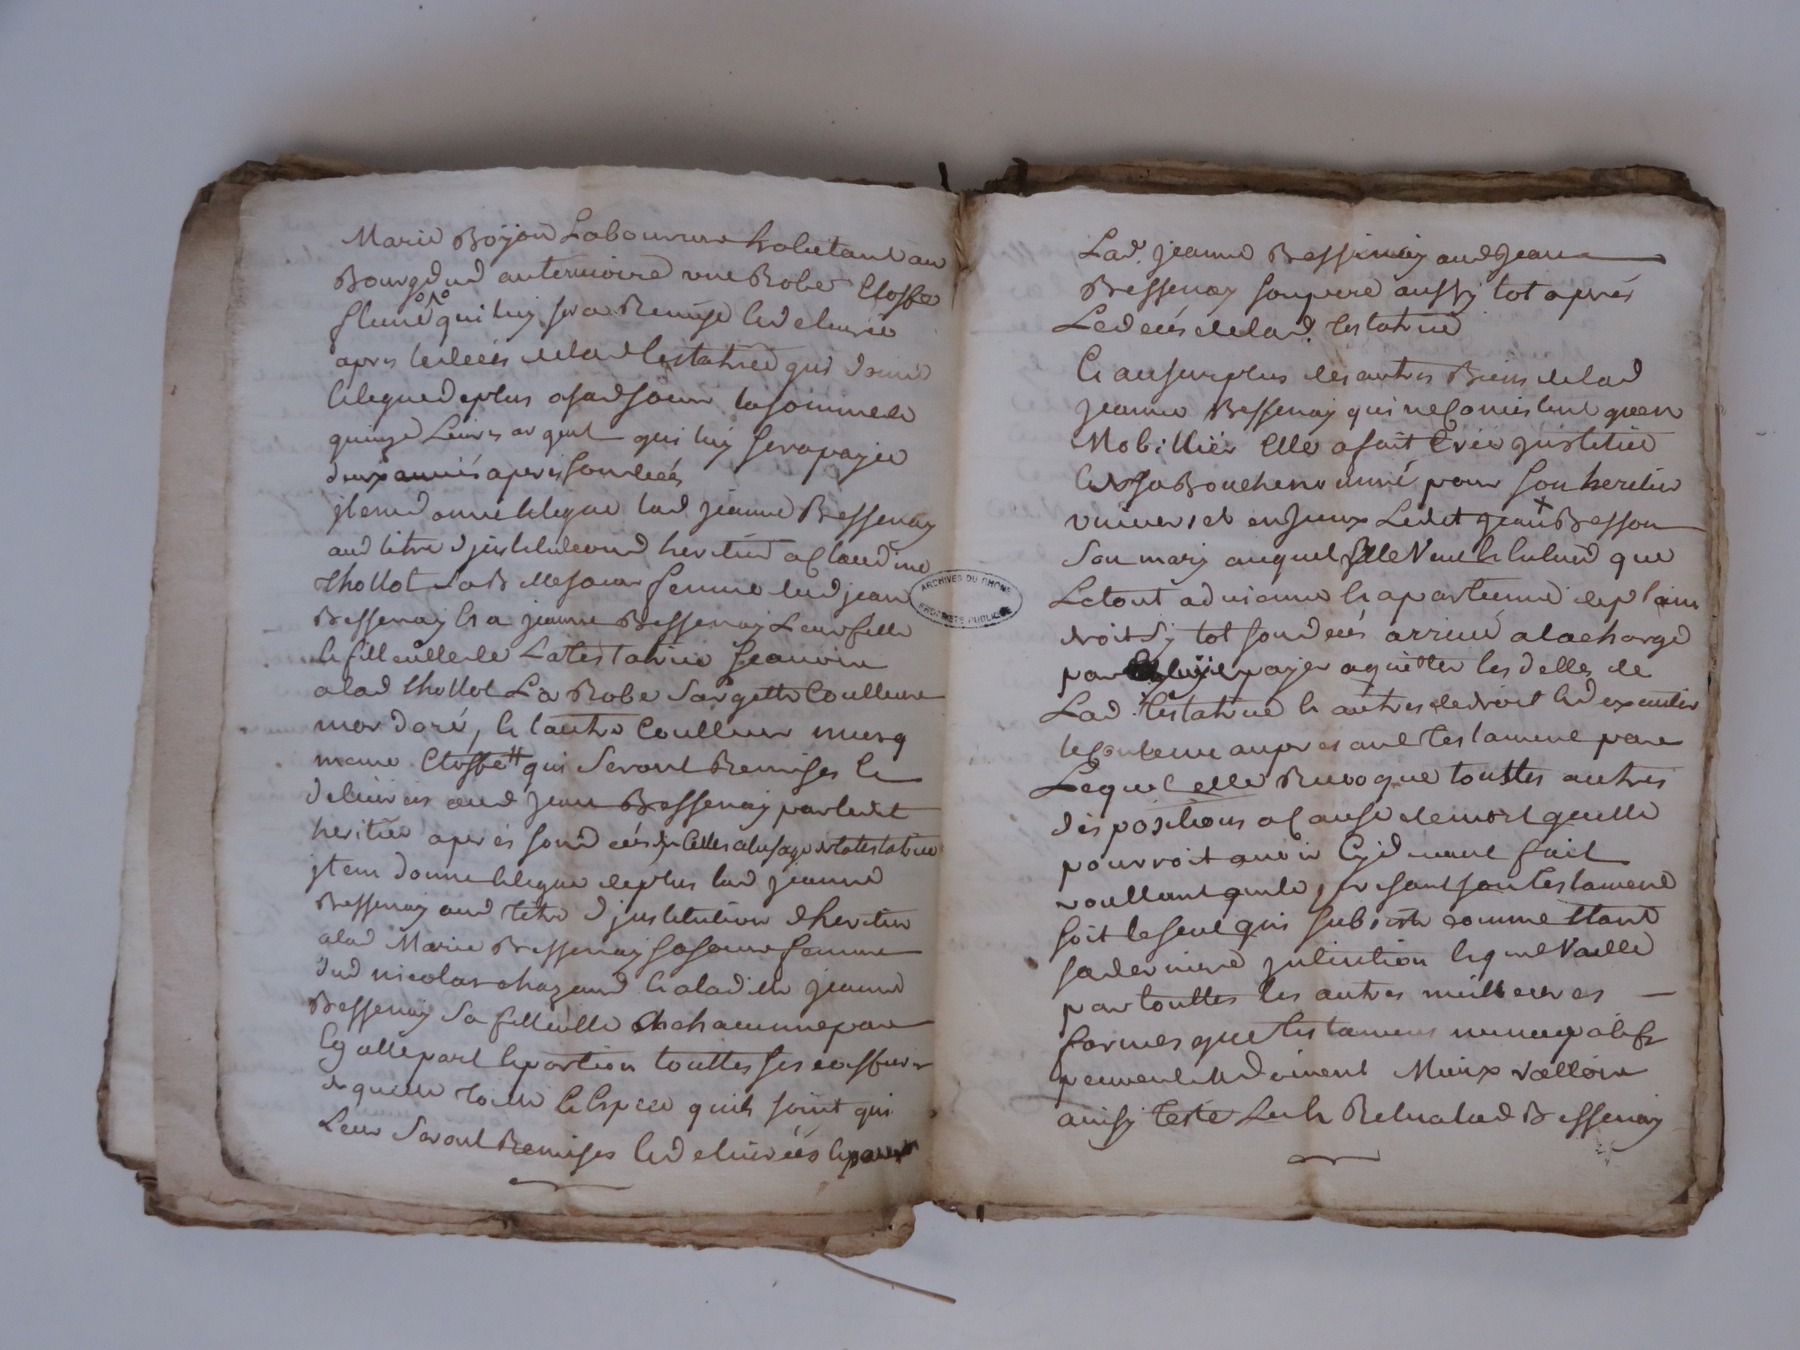 Marie Boyon Laboureur habitant au
Bourg dud antermoire une Robe Etoffe
qui luy sera Remise et delivrée
apres le decés de lad testatrice qui donne
et legue de plus a sad soeur la somme de
quinze Livres argent qui luy sera payée
deux années apres son decés
jtem donne et legue lad jeanne Bessenay
aud titre d'jnstitution d heritier a Claudine
thollot sa Belle soeur femme dud jean
Bessenay et a jeanne Bessenay Leur fille
et filleulle de La testatrice scavoir
a lad thollot La Robe Sargette Coulleur
mordoré, et l'autre Coulleur musq
meme Etoffe qui Seront Remises et
delivrées aud jean Bessenay par ledit
heritier apres son decés de celles a l usage de la testatrice
jtem donne et legue de plus lad jeanne
Bessenay aud titre d'jnstitution d'heritier
a lad Marie Bessenay sa soeur femme
dud nicolas chazaud et a lad jeanne
Bessenay Sa filleulle chachaunne par
Egalle part et portion touttes ses coiffures
de quelle toille et Espece quils soint qui
Leur Seront Remises et delivrées et
Lad. jeanne Bessenay aud jean
Bessenay son pere aussy tot apres
Le decés de lad. testatrice
Et au surplus des autres Biens de lad
jeanne Bessenay qui ne Consistent qu'en
Mobillier Elle a fait Créé jnstitué
et de sa Bouche nommé pour son heritier
universel en jceux Ledit jean Besson
Son mary auquel Elle Veut et entend que
Le tout advienne et apartienne de plain
droit sy tot son deces arrivé a la charge
par luy de payer aquitter les dettes de
Lad. testatrice et autres de droit et d executer
le contenu au present testament par
Lequel elle Revoque touttes autres
dispositions a Cause de mort quelle
pourroit avoir Cy devant fait
voullant que le present son testament
soit le seul qui subsiste comme Etant
sa derniere jntention et que Vaille
par touttes les autres meilleures
formes que testamens nuncupatifs
peuvent et doivent Mieux valloir
ainsy testé Lu et Relu a lad Bessenay
ARCHIVES DU RHONE
PROPRIETE PUBLIQUE